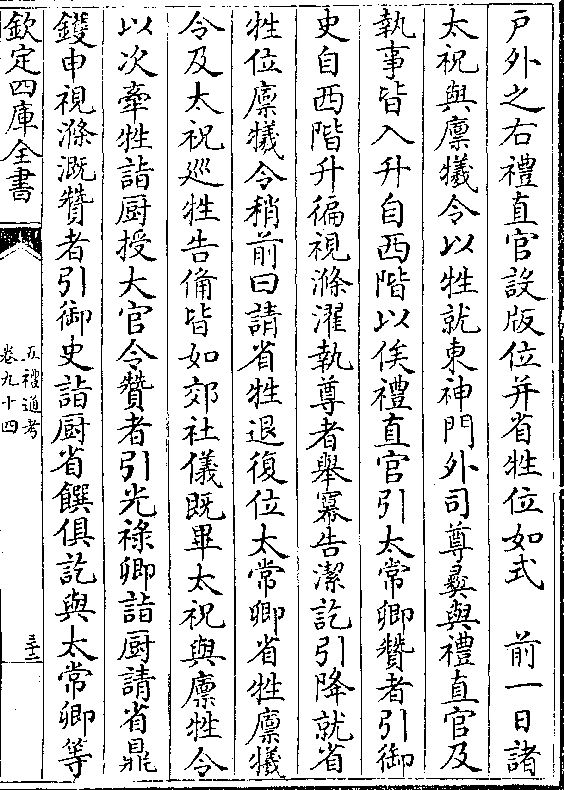 戸外之右禮直官設版位并省牲位如式　前一日諸
太祝與廪犧令以牲就東神門外司尊彞與禮直官及
執事皆入升自西階以俟禮直官引太常卿贊者引御
史自西階升徧視滌濯執尊者舉羃告潔訖引降就省
牲位廪犧令稍前曰請省牲退復位太常卿省牲廪犧
令及太祝巡牲告備皆如郊社儀既畢太祝與廪牲令
以次牽牲詣厨授大官令贊者引光禄卿詣厨請省鼎
鑊申視滌溉贊者引御史詣厨省饌俱訖與太常卿等
欽定四庫全書
五禮通考
卷九十四
三十二